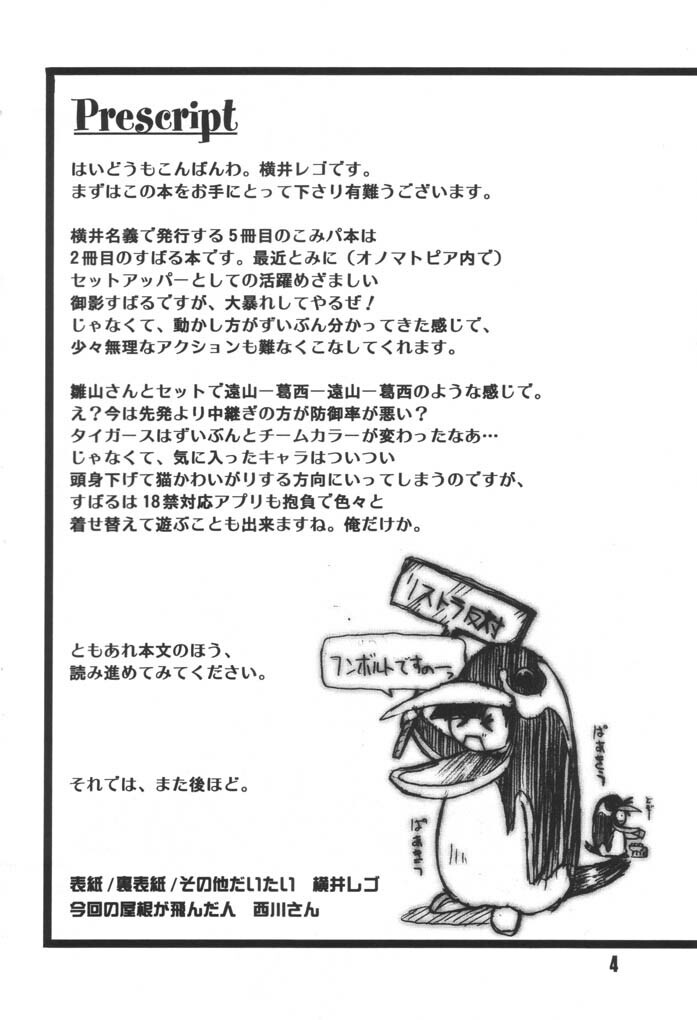 Prescript
はいどうもこんばんわ。横井レゴです。
まずはこの本をお手にとって下さり有難うございます。
横井名義で発行する5冊目のこみパ本は
2冊目のすばる本です。最近とみに（オノマトピア内で）
セットアッパーとしての活躍めざましい
御影すばるですが、大暴れしてやるぜ！
じゃなくて、動かし方がずいぶん分かってきた感じで、
少々無理なアクションも難なくこなしてくれます。
雛山さんとセットで遠山－葛西－遠山－葛西のような感じで。
え？今は先発より中継ぎの方が防御率が悪い？
タイガースはずいぶんとチームカラーが変わったなあ…
じゃなくて、気に入ったキャラはついつい
頭身下げて猫かわいがりする方向にいってしまうのですが、
すばるは18禁対応アプリも抱負で色々と
着せ替えて遊ぶことも出来ますね。俺だけか。
リストラ反対
フンボルトですのーっ
ともあれ本文のほう、
読み進めてみてください。
ぱあきぅ
ばあきぅ
それでは、また後ほど。
表紙/裏表紙/その他だいたい 横井レゴ
今回の屋根が飛んだ人 西川さん
4